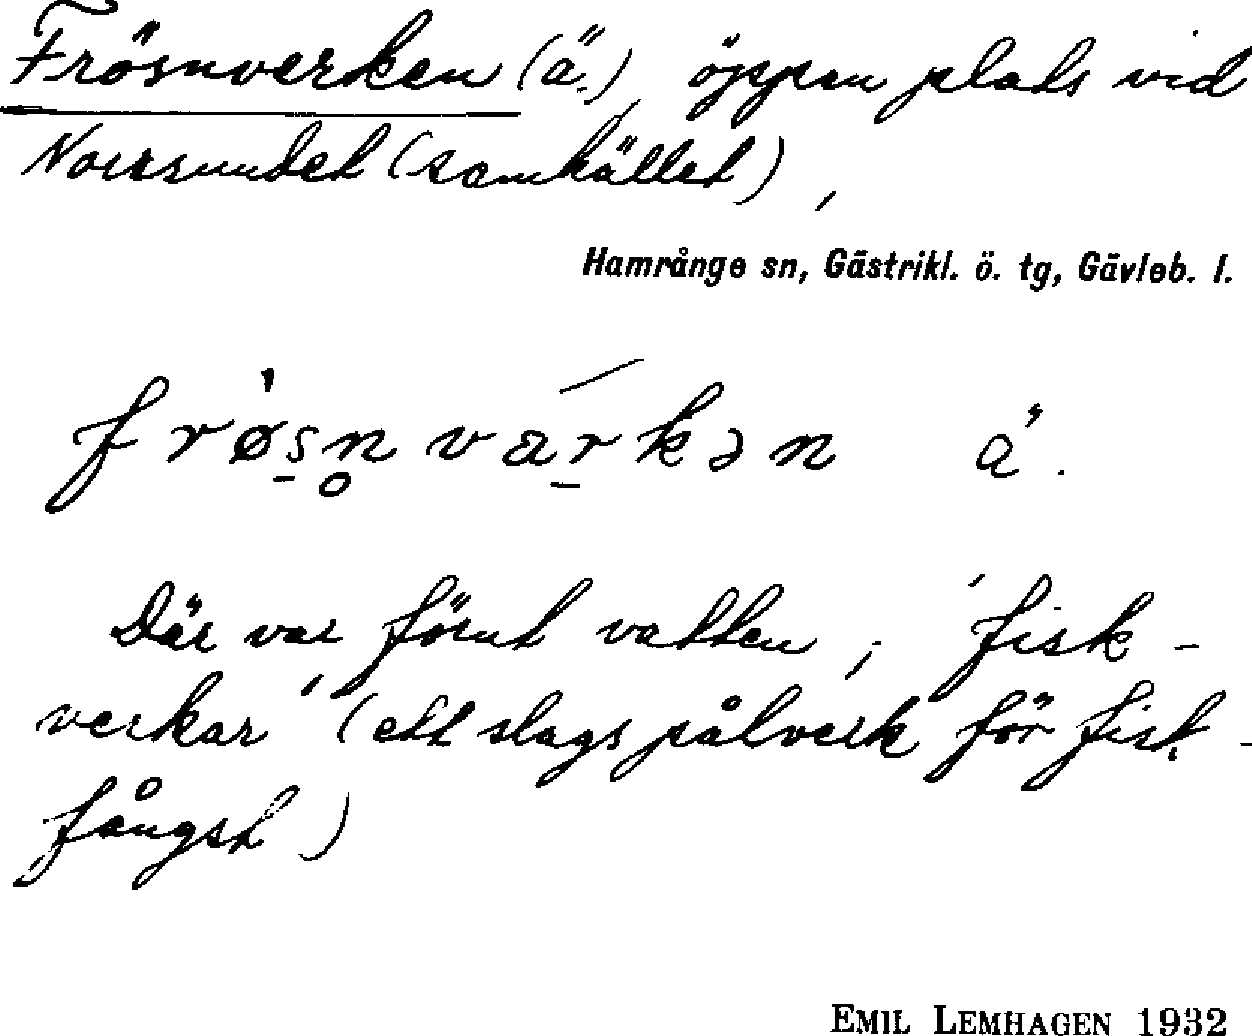 Frösnverken (ä.), öppen plats vid
Norrsundet (samhället),
Hamrånge sn, Gästrikl. ö. tg, Gävleb. l.
frøsn̥ värkən ä.
Där var förut vatten; 'fisk-
verkar' (ett slags pålverk för fisk-
fångst)
EMIL LEMHAGEN 1932